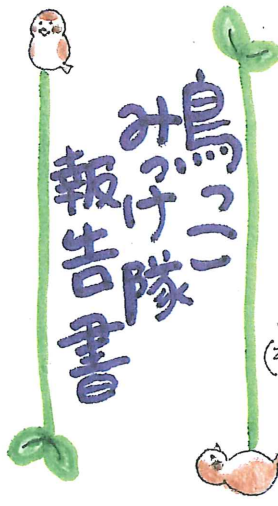 鳥っこ
みっけ隊
報告書